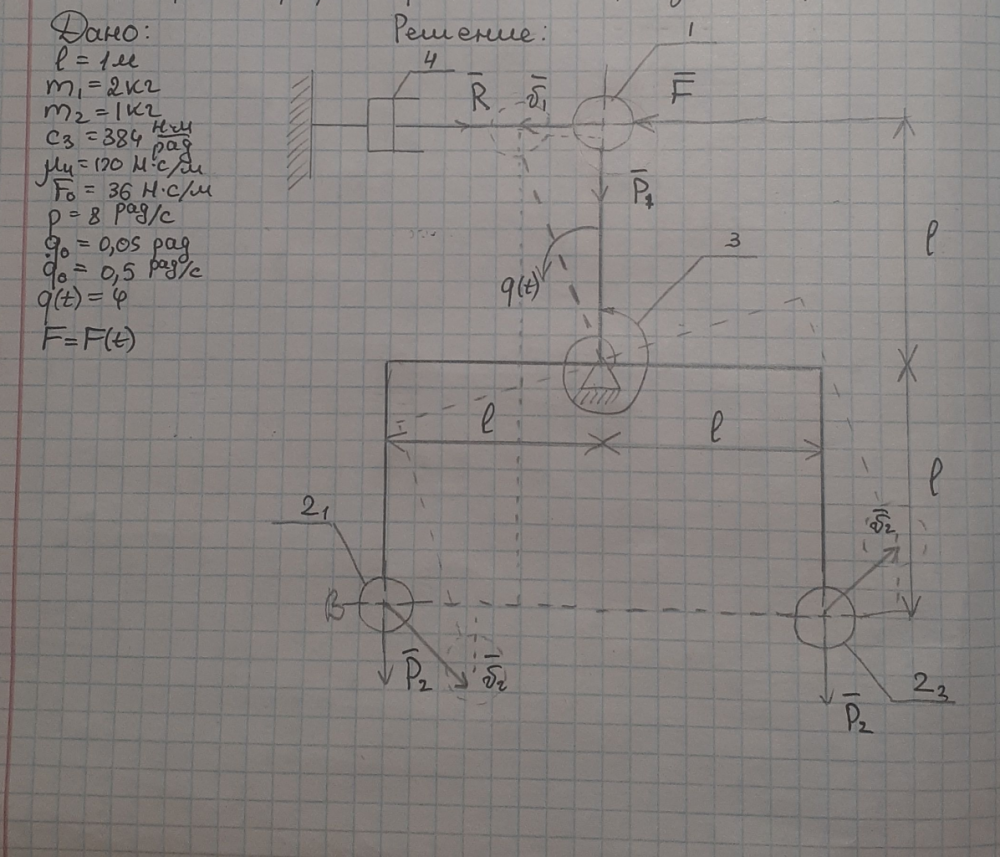 Дано:
l = 1м
m₁ = 2кг
m₂ = 1кг
c₃ = 384 Н·м/рад
μ₄ = 120 Н·с/м
F₀ = 36 Н·с/м
p = 8 рад/с
q₀ = 0,05 рад
q̇₀ = 0,5 рад/с
q(t) = φ
F = F(t)
Решение:
4
1
R̄
ῡ₁
F̄
P̄₁
3
l
q(t)
l
l
l
2₁
ῡ₂
B
P̄₂
ῡ₂
2₂
P̄₂